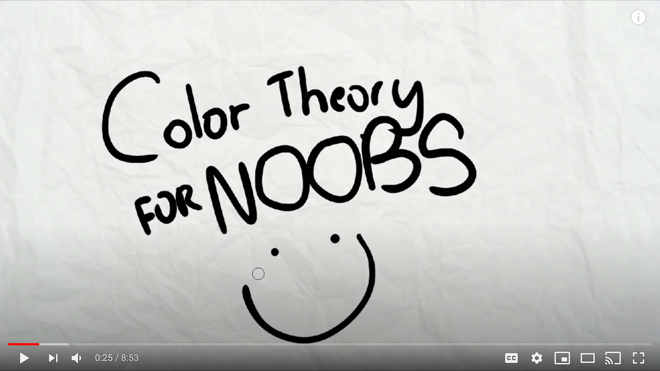 Color Theory
FOR NOOBS
0:25 / 8:53
CC